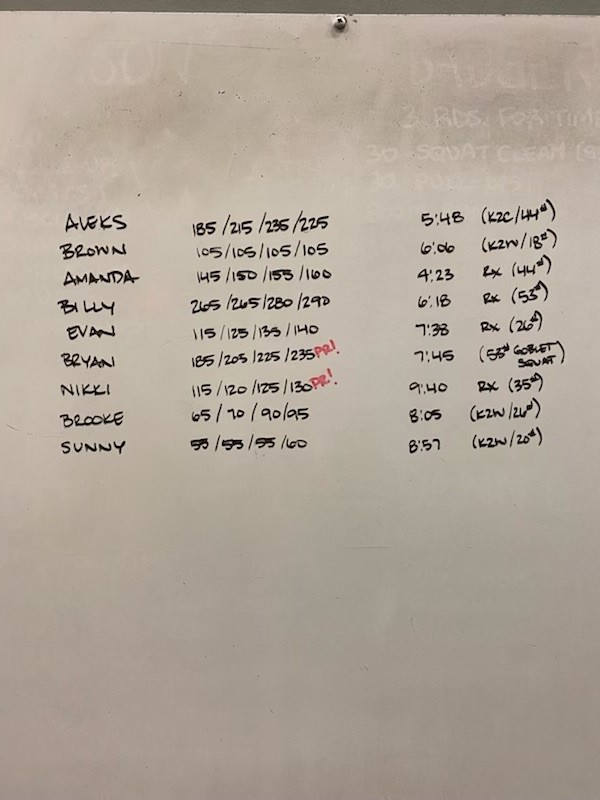 3 RDS FOR TIME
30 SQUAT CLEAN
ALEKS 185/215/235/225 5:48 (K2C/44#)
BROWN 105/105/105/105 6:06 (K2W/18#)
AMANDA 145/150/155/160 4:23 RX (44#)
BILLY 265/265/280/290 6:18 RX (53#)
EVAN 115/125/135/140 7:38 RX (26#)
BRYAN 185/205/225/235 PR! 7:45 (53# GOBLET SQUAT)
NIKKI 115/120/125/130 PR! 9:40 RX (35#)
BROOKE 65/70/90/95 8:05 (K2W/26#)
SUNNY 55/55/55/60 8:57 (K2W/20#)